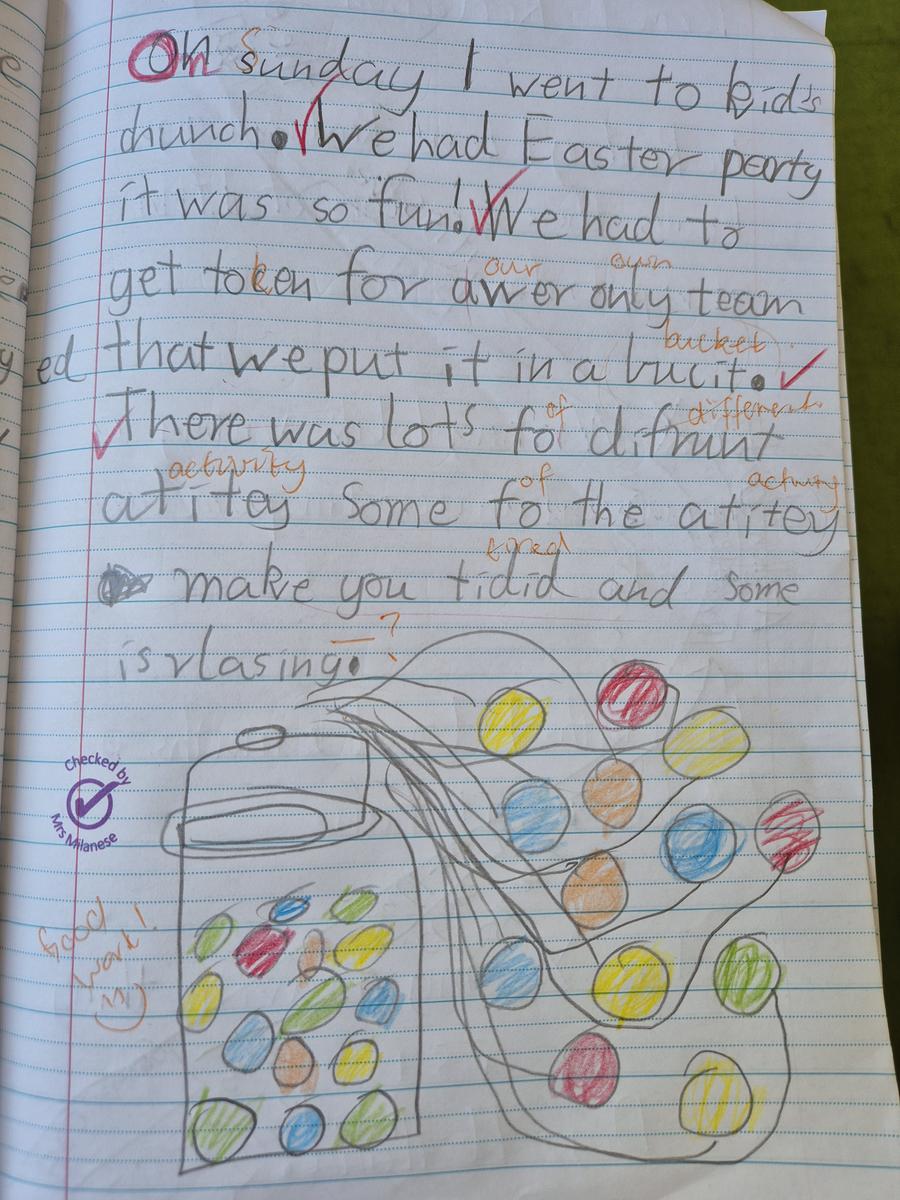 On Sunday I went to kid's
chunch. We had Easter perty
it was so fun! We had to
get token for awer only team
our own
that we put it in a bucit.
bucket
ed
There was lots fo difrunt
of different
atitey some fo the atitey
activity of activity
make you tidid and some
tired
is rlasing.
?
Checked by
Mrs Milanese
Good
work!